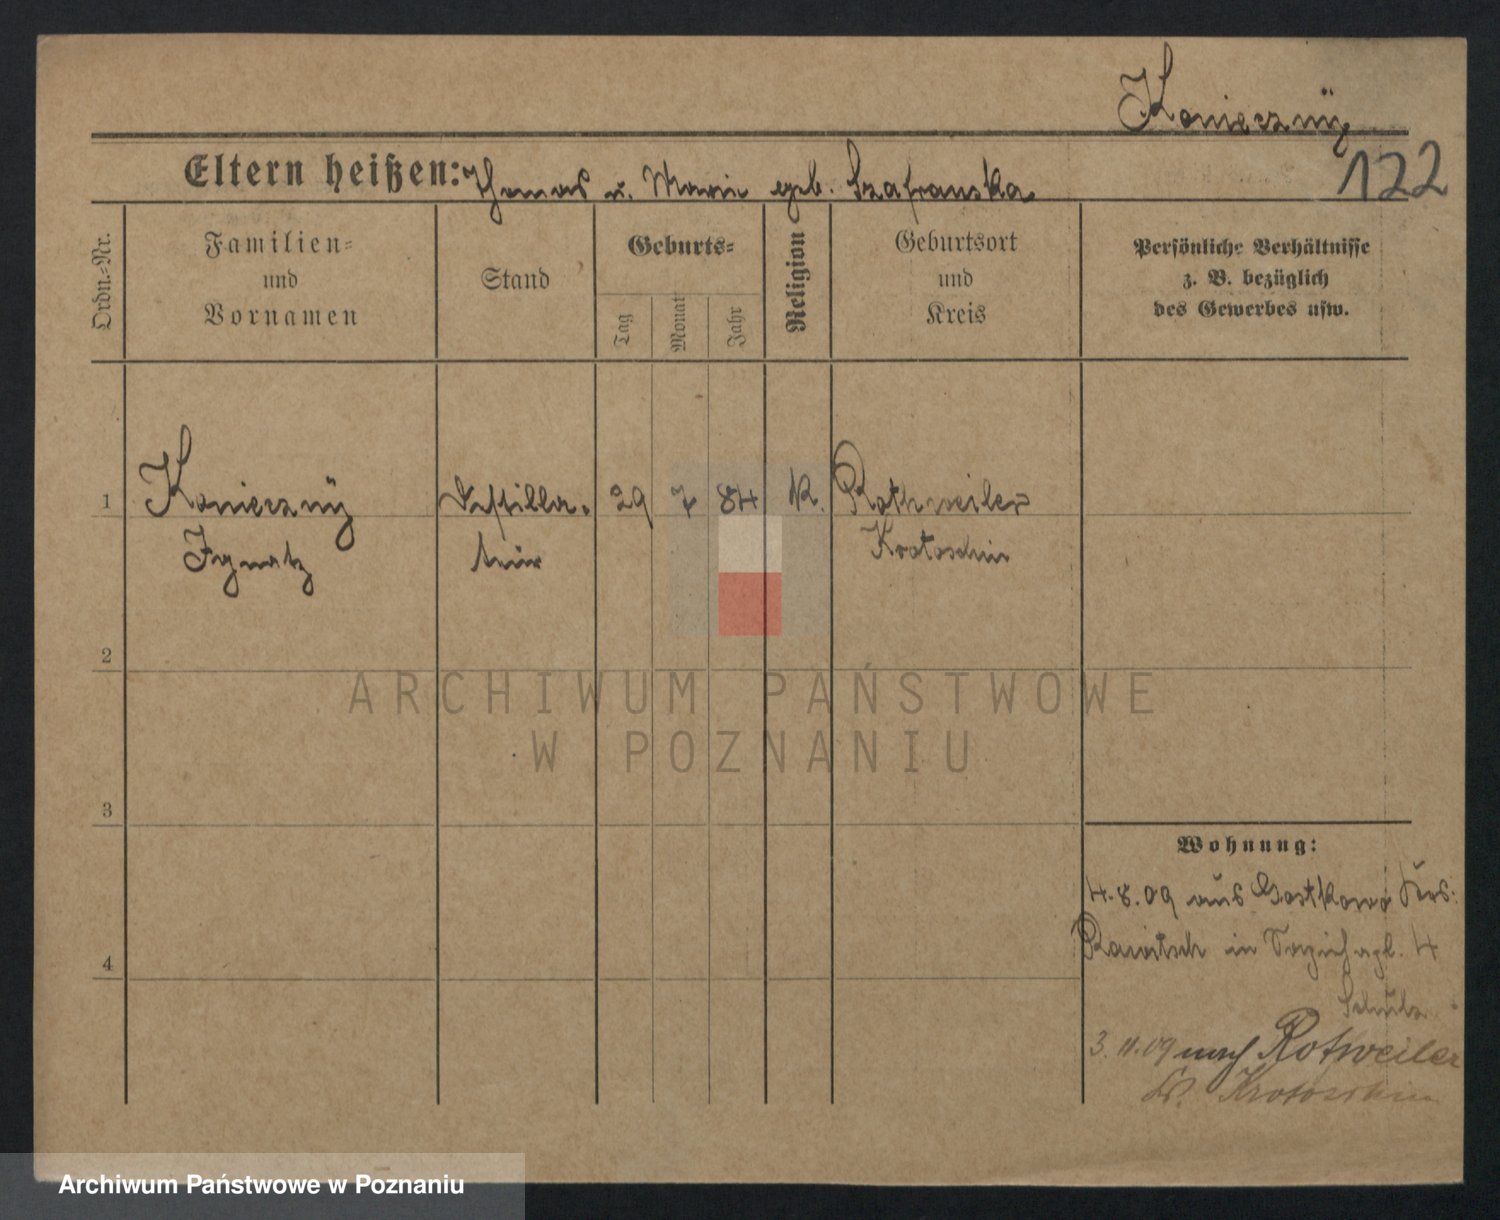 Konieczny
Eltern heißen: Thomas u. Marie geb. Szafranska
122
Ordn.-Nr.
Familien-
und
Vornamen
Stand
Geburts-
Tag
Monat
Jahr
Religion
Geburtsort
und
Kreis
Persönliche Verhältnisse
z. B. bezüglich
des Gewerbes usw.
1
Konieczny
Ignatz
Destilla-
teur
29
7
84
K.
Rothweiler
Krotoschin
2
ARCHIWUM PAŃSTWOWE
W POZNANIU
3
4
Wohnung:
4.8.09 aus Gostkowo Krs:
Rawitsch in 4
Schulz
3.11.09 nach Rotweiler
Kr. Krotoschin
Archiwum Państwowe w Poznaniu